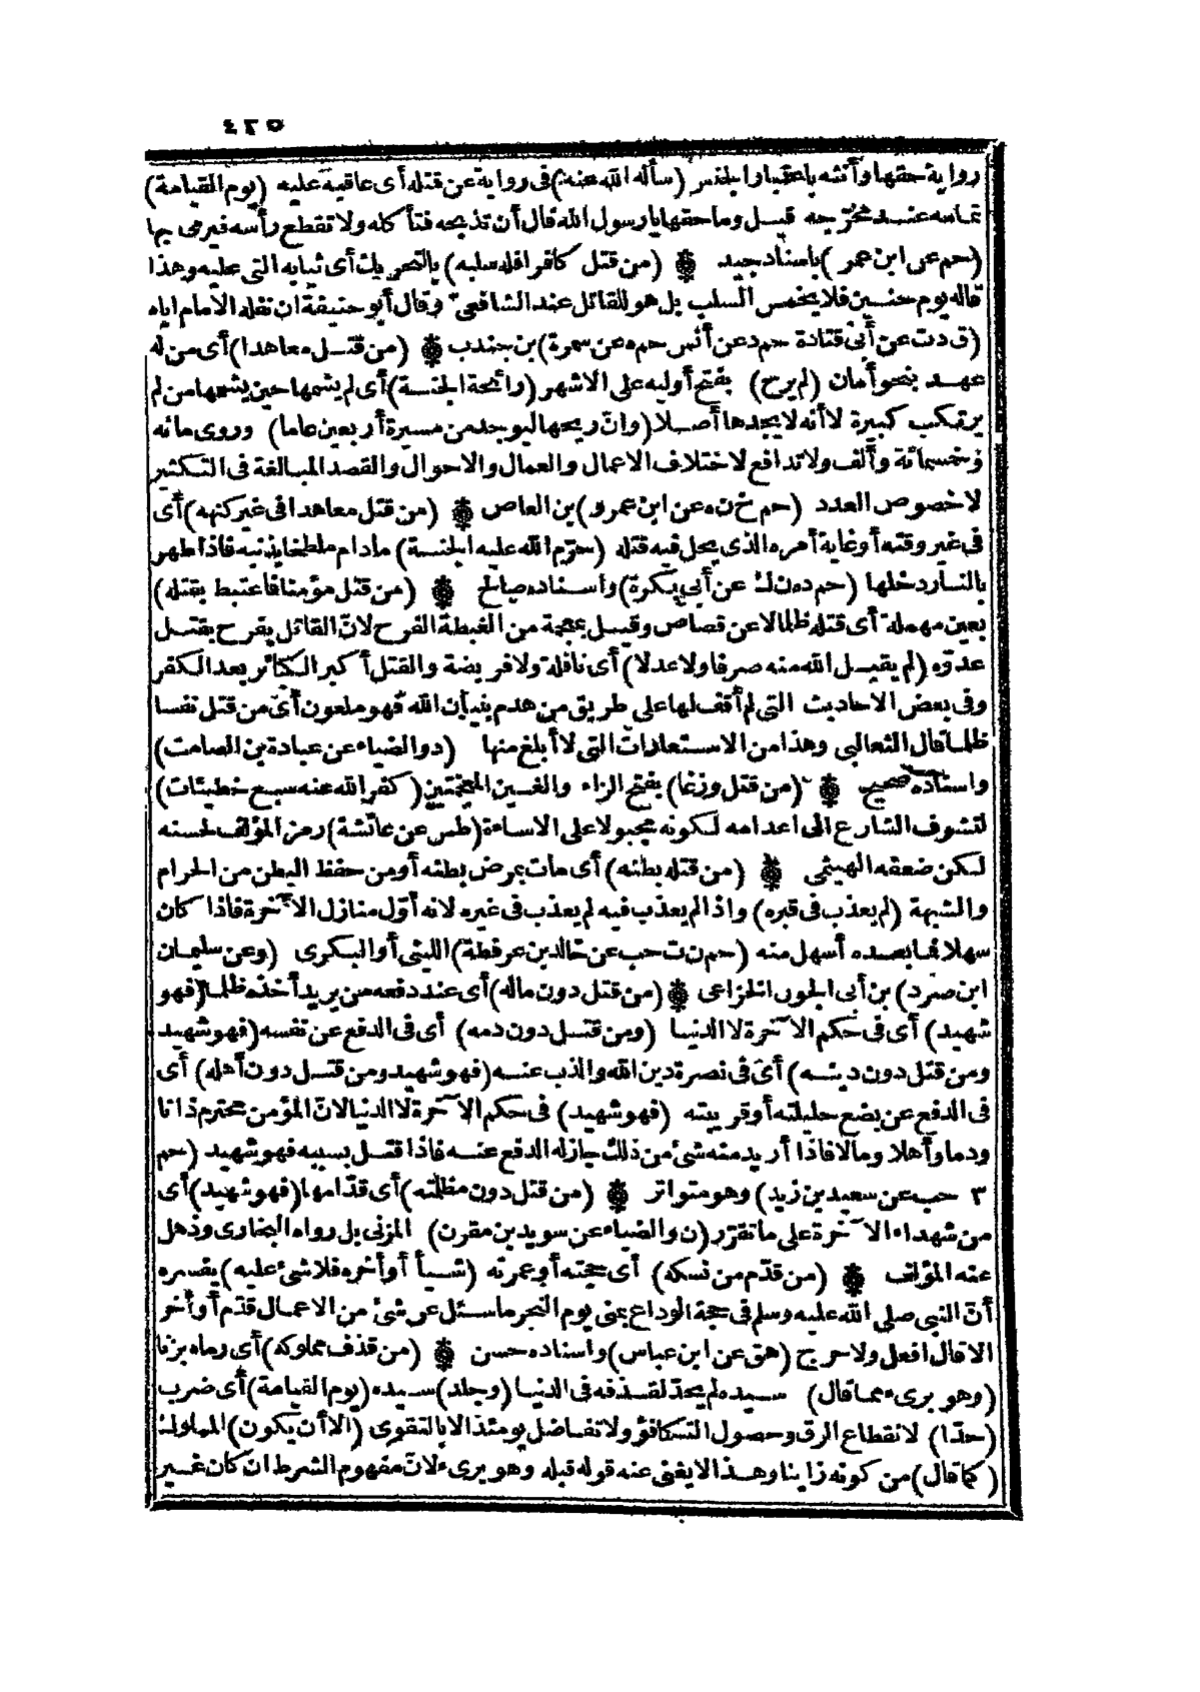 ٤٢٥
رواية حقها وأنثه باعتبار الجنس (سأله الله عنه) فى رواية عن قتله أى عاقبة عليه (يوم القيامة)
تمامه عند مخرجه قيل وما حقها يارسول الله قال أن تذبحه فتأكله ولا تقطع رأسه فيرمى بها
(حم عن ابن عمر) باسناد جيد (من قتل كافرا فله سلبه) بالتحريك أى ثيابه التى عليه وهذا
قاله يوم حنين فلا يخمس السلب بل هو للقاتل عند الشافعىّ وقال أبو حنيفة ان نفله الامام اياه
(ق د ت عن أبى قتادة حم د عن أنس حم ه عن سمرة) بن جندب (من قتل معاهدا) أى من له
عهد بنحو أمان (لم يرح) بفتح أوليه على الاشهر (رائحة الجنة) أى لم يشمها حين يشمها من لم
يرتكب كبيرة لا أنه لا يجدها أصلا (وانّ ريحها ليوجد من مسيرة أربعين عاما) وروى مائة
وخمسمائة وألف ولا تدافع لاختلاف الاعمال والعمال والاحوال والقصد المبالغة فى التكثير
لا خصوص العدد (حم خ ن ه عن ابن عمرو) بن العاص (من قتل معاهدا فى غير كنهه) أى
فى غير وقته أو غاية أمره الذى يحل فيه قتله (حرّم الله عليه الجنة) مادام ملطخا بذنبه فاذا طهر
بالنار دخلها (حم د ن ك عن أبى بكرة) واسناده صالح (من قتل مؤمنا فاعتبط بقتله)
بعين مهملة أى قتله ظلما لا عن قصاص وقيل بمعجمة من الغبطة الفرح لانّ القاتل يفرح بقتل
عدوّه (لم يقبل الله منه صرفا ولا عدلا) أى نافلة ولا فريضة والقتل أكبر الكبائر بعد الكفر
وفى بعض الاحاديث التى لم أقف لها على طريق من هدم بنيان الله فهو ملعون أى من قتل نفسا
ظلما قال الثعالبى وهذا من الاستعارات التى لا أبلغ منها (د والضياء عن عبادة بن الصامت)
واسناده صحيح (من قتل وزغا) بفتح الزاء والغين المعجمتين (كفر الله عنه سبع خطيئات)
لتشوف الشارع الى اعدامه لكونه مجبولا على الاساءة (طس عن عائشة) رمز المؤلف لحسنه
لكن ضعفه الهيثمى (من قتله بطنه) أى مات بمرض بطنه أو من حفظ البطن من الحرام
والشبهة (لم يعذب فى قبره) واذا لم يعذب فيه لم يعذب فى غيره لانه أوّل منازل الآخرة فاذا كان
سهلا فما بعده أسهل منه (حم ن ت حب عن خالد بن عرفطة) الليثى أو البكرى (وعن سليمان
ابن صرد) بن أبى الجون الخزاعى (من قتل دون ماله) أى عند دفعه من يريد أخذه ظلما (فهو
شهيد) أى فى حكم الآخرة لا الدنيا (ومن قتل دون دمه) أى فى الدفع عن نفسه (فهو شهيد
ومن قتل دون دينه) أى فى نصرة دين الله والذب عنه (فهو شهيد ومن قتل دون أهله) أى
فى الدفع عن بضع حليلته أو قريبته (فهو شهيد) فى حكم الآخرة لا الدنيا لانّ المؤمن محترم ذاتا
ودما وأهلا ومالا فاذا أريد منه شئ من ذلك جاز له الدفع عنه فاذا قتل بسببه فهو شهيد (حم
٣ حب عن سعيد بن زيد) وهو متواتر (من قتل دون مظلمته) أى قدّامها (فهو شهيد) أى
من شهداء الآخرة على ما تقرّر (ن والضياء عن سويد بن مقرن) المزنى بل رواه البخارى وذهل
عنه المؤلف (من قدّم من نسكه) أى حجته أو عمرته (شيأ أو أخره فلا شئ عليه) يفسره
أنّ النبى صلى الله عليه وسلم فى حجة الوداع بمنى يوم النحر ما سئل عن شئ من الاعمال قدّم أو أخر
الا قال افعل ولا حرج (هق عن ابن عباس) واسناده حسن (من قذف مملوكه) أى رماه بزنا
(وهو برىء مما قال) سيده لم يحدّ لقذفه فى الدنيا (وجلد) سيده (يوم القيامة) أى ضرب
(حدّا) لانقطاع الرق وحصول التكافؤ ولا تفاضل يومئذ الا بالتقوى (الا أن يكون) المملوك
(كما قال) من كونه زانيا وهذا لا يغنى عنه قوله قبله وهو برىء لانّ مفهوم الشرط ان كان غير